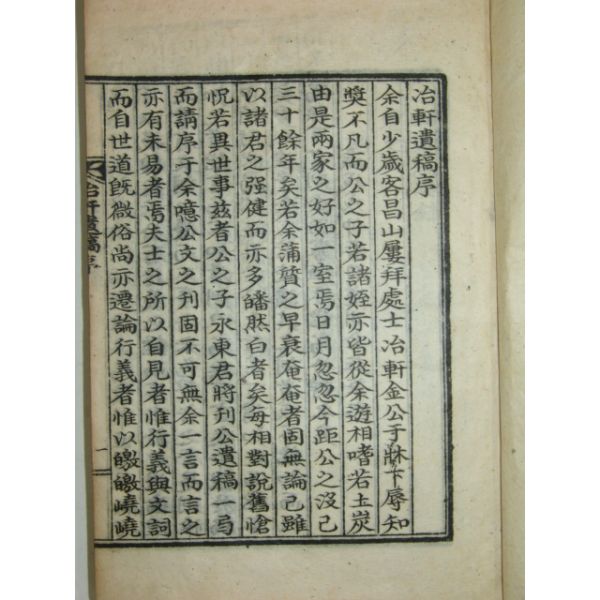 冶軒遺稿序
余自少歲客昌山屢拜處士冶軒金公于牀下辱知
獎不凡而公之子若諸姪亦皆從余遊相嗜若土炭
由是兩家之好如一室焉日月忽忽今距公之沒已
三十餘年矣若余蒲質之早衰奄奄者固無論已雖
以諸君之强健而亦多皤然白者矣每相對說舊愴
怳若異世事玆者公之子永東君將刊公遺稿一弓
而請序于余噫公文之刊固不可無余一言而言之
亦有未易者焉夫士之所以自見者惟行義與文詞
而自世道旣微俗尙亦遷論行義者惟以皦皦嶢嶢
冶軒遺稿序
一